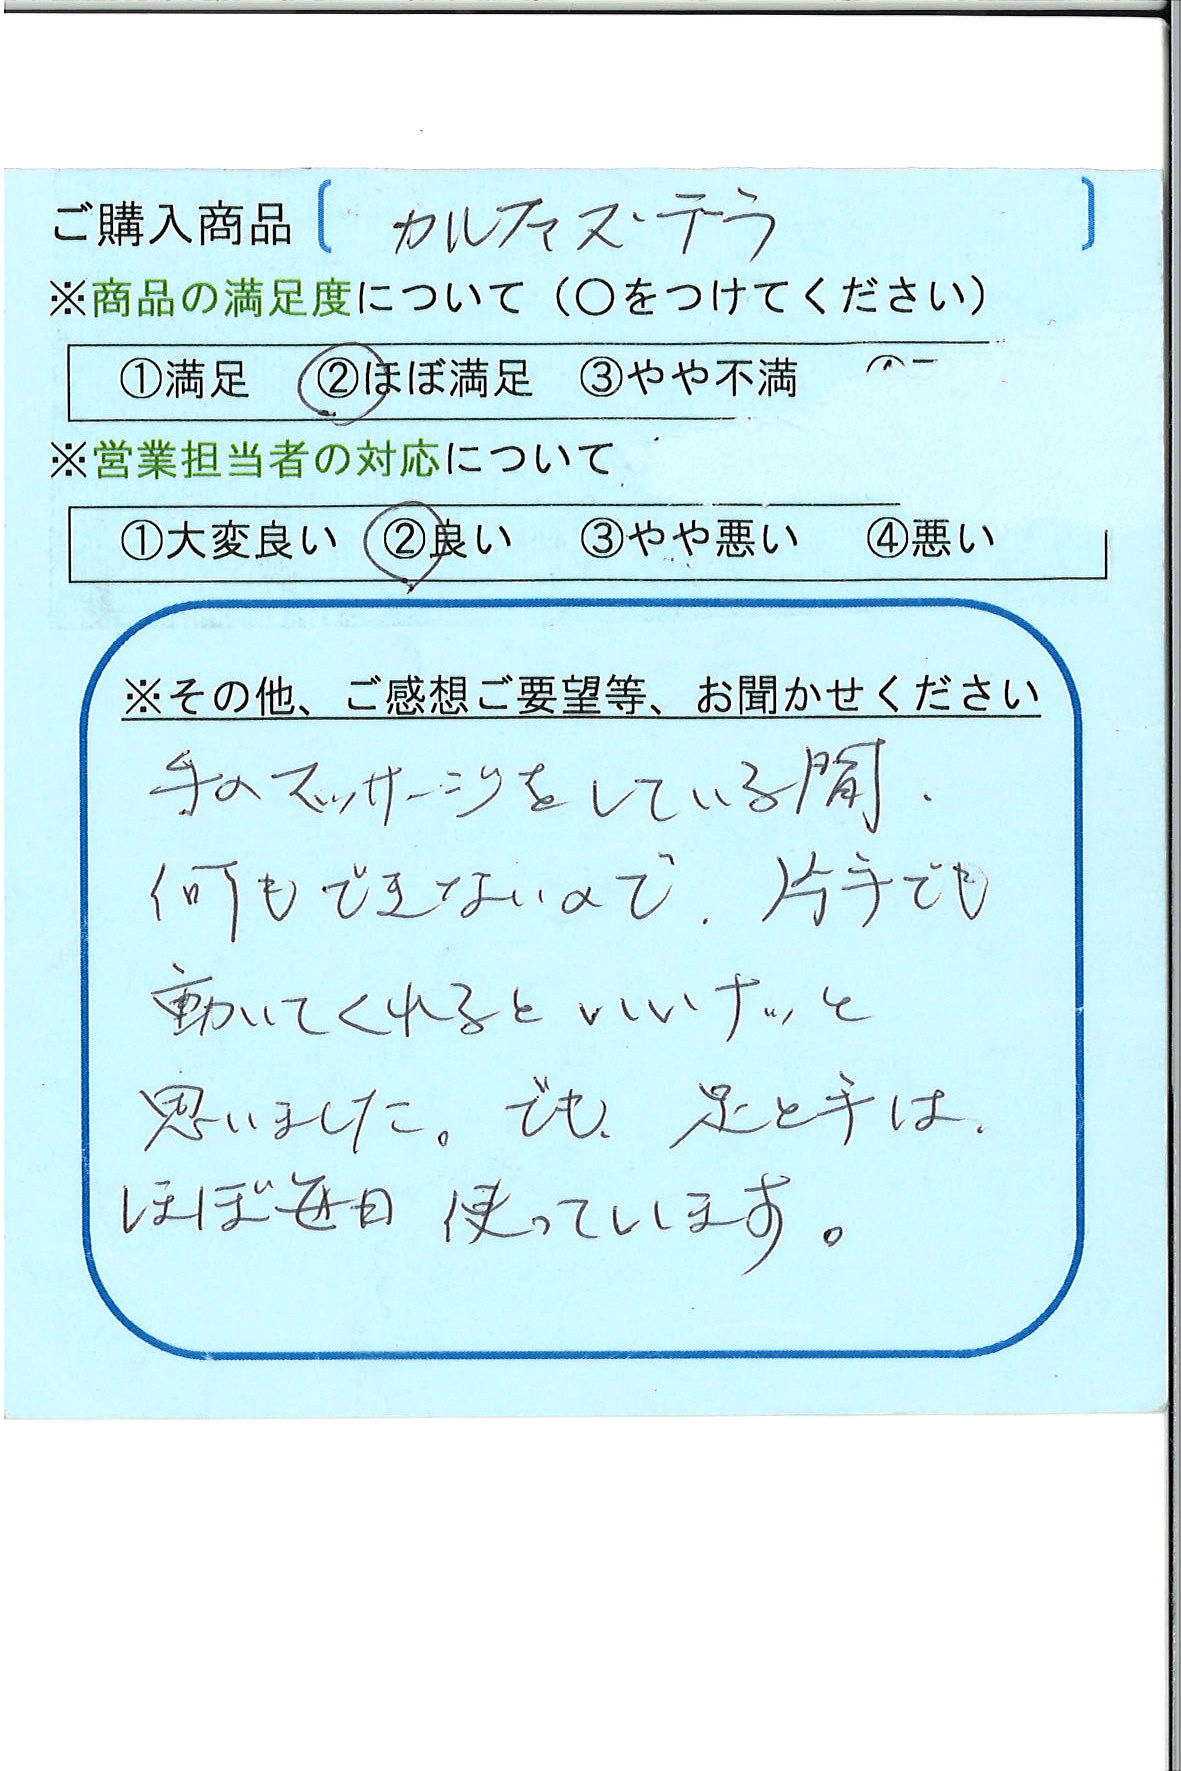 ご購入商品〔カルティス・デラ〕
※商品の満足度について（○をつけてください）
①満足　②ほぼ満足　③やや不満
※営業担当者の対応について
①大変良い　②良い　③やや悪い　④悪い
※その他、ご感想ご要望等、お聞かせください
手のマッサージをしている間、
何もできないので、片手でも
動いてくれるといいナッと
思いました。でも、足と手は、
ほぼ毎日使っています。